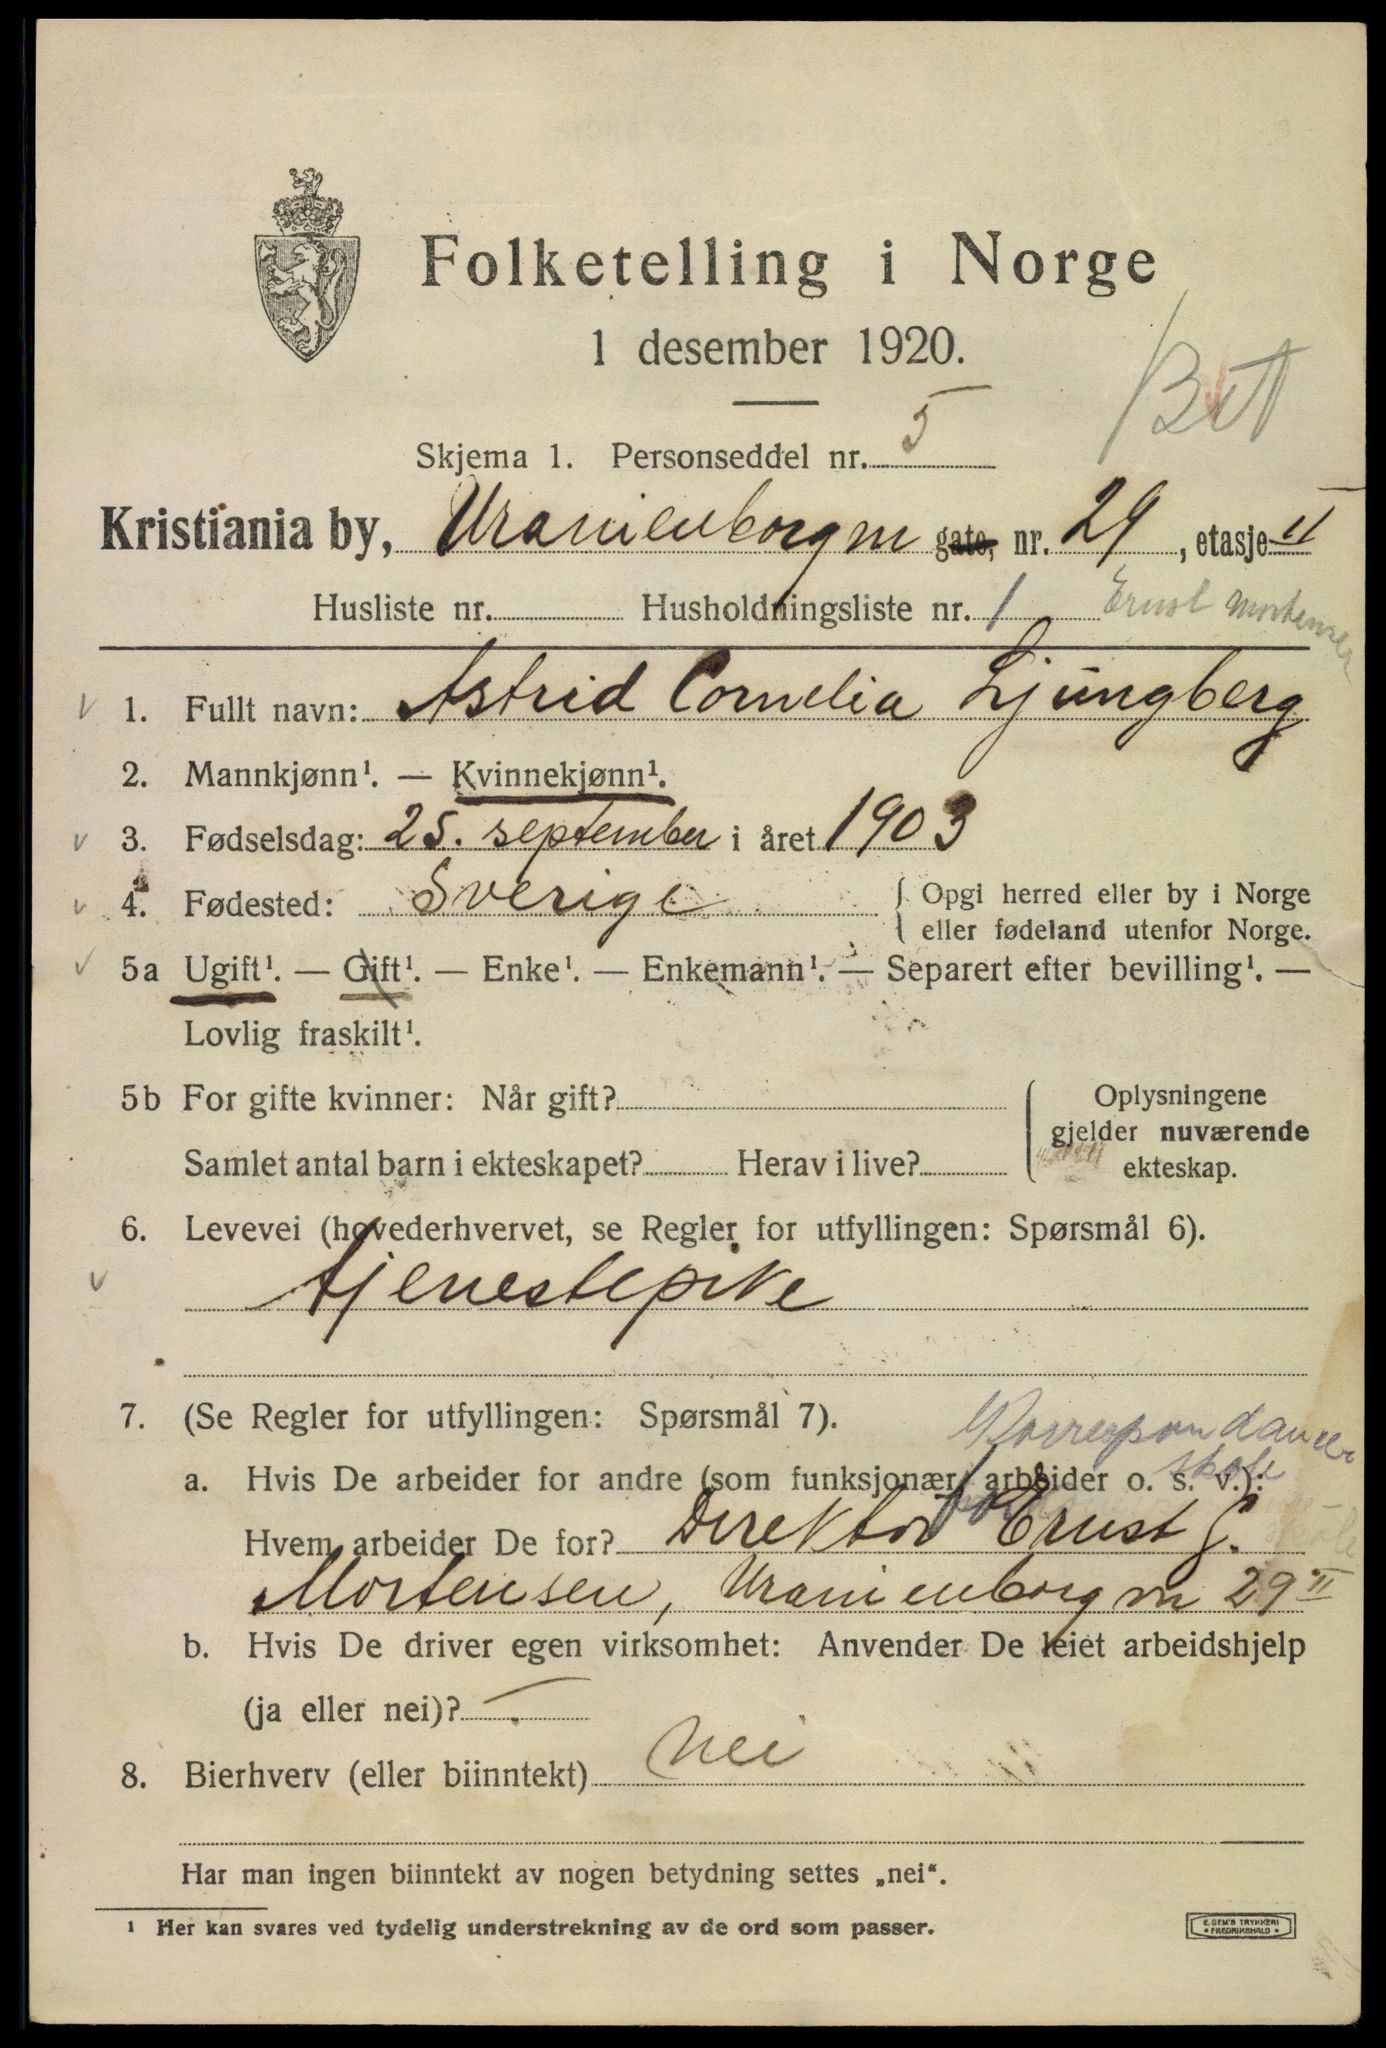 Folketelling i Norge
1 desember 1920.
Skjema 1. Personseddel nr. 5
Kristiania by, Uranienborgvn gate, nr. 29, etasje II
Husliste nr. Husholdningsliste nr. 1 Ernst Mortensen
1. Fullt navn: Astrid Cornelia Ljungberg
2. Mannkjønn¹. — Kvinnekjønn¹.
3. Fødselsdag: 25. september i året 1903
4. Fødested: Sverige { Opgi herred eller by i Norge
{ eller fødeland utenfor Norge.
5a Ugift¹. — Gift¹. — Enke¹. — Enkemann¹. — Separert efter bevilling¹. —
Lovlig fraskilt¹.
5b For gifte kvinner: Når gift? Oplysningene
gjelder nuværende
Samlet antal barn i ekteskapet? Herav i live? ekteskap.
6. Levevei (hovederhvervet, se Regler for utfyllingen: Spørsmål 6).
tjenestepike
7. (Se Regler for utfyllingen: Spørsmål 7).
a. Hvis De arbeider for andre (som funksjonær, arbeider o. s. v.):
Hvem arbeider De for? Direktør Ernst G.
Mortensen, Uranienborgvn 29 II
b. Hvis De driver egen virksomhet: Anvender De leiet arbeidshjelp
(ja eller nei)? —
8. Bierhverv (eller biinntekt) Nei
Har man ingen biinntekt av nogen betydning settes „nei“.
¹ Her kan svares ved tydelig understrekning av de ord som passer.
E. SEM'S TRYKKERI
• FREDRIKSHALD •